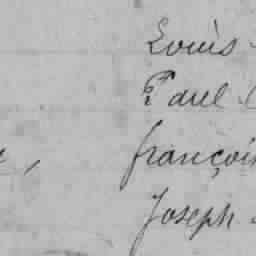 Louis
Paul
françois
Joseph